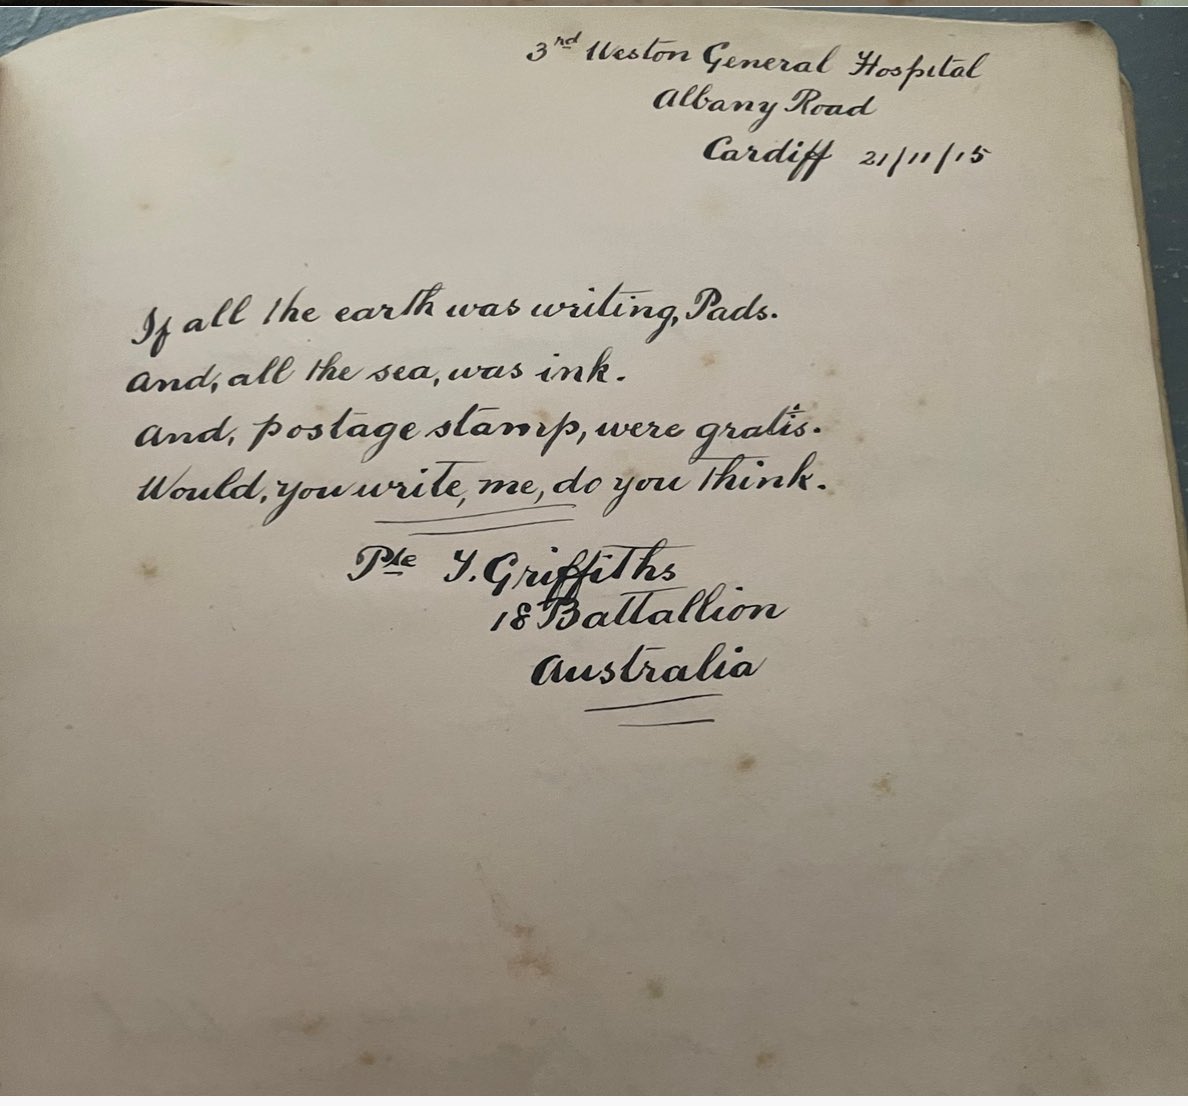 3rd Weston General Hospital
Albany Road
Cardiff 21/11/15
If all the earth was writing, Pads.
And, all the sea, was ink.
And, postage stamp, were gratis.
Would, you write, me, do you think.
Pte J. Griffiths
18 Battallion
Australia